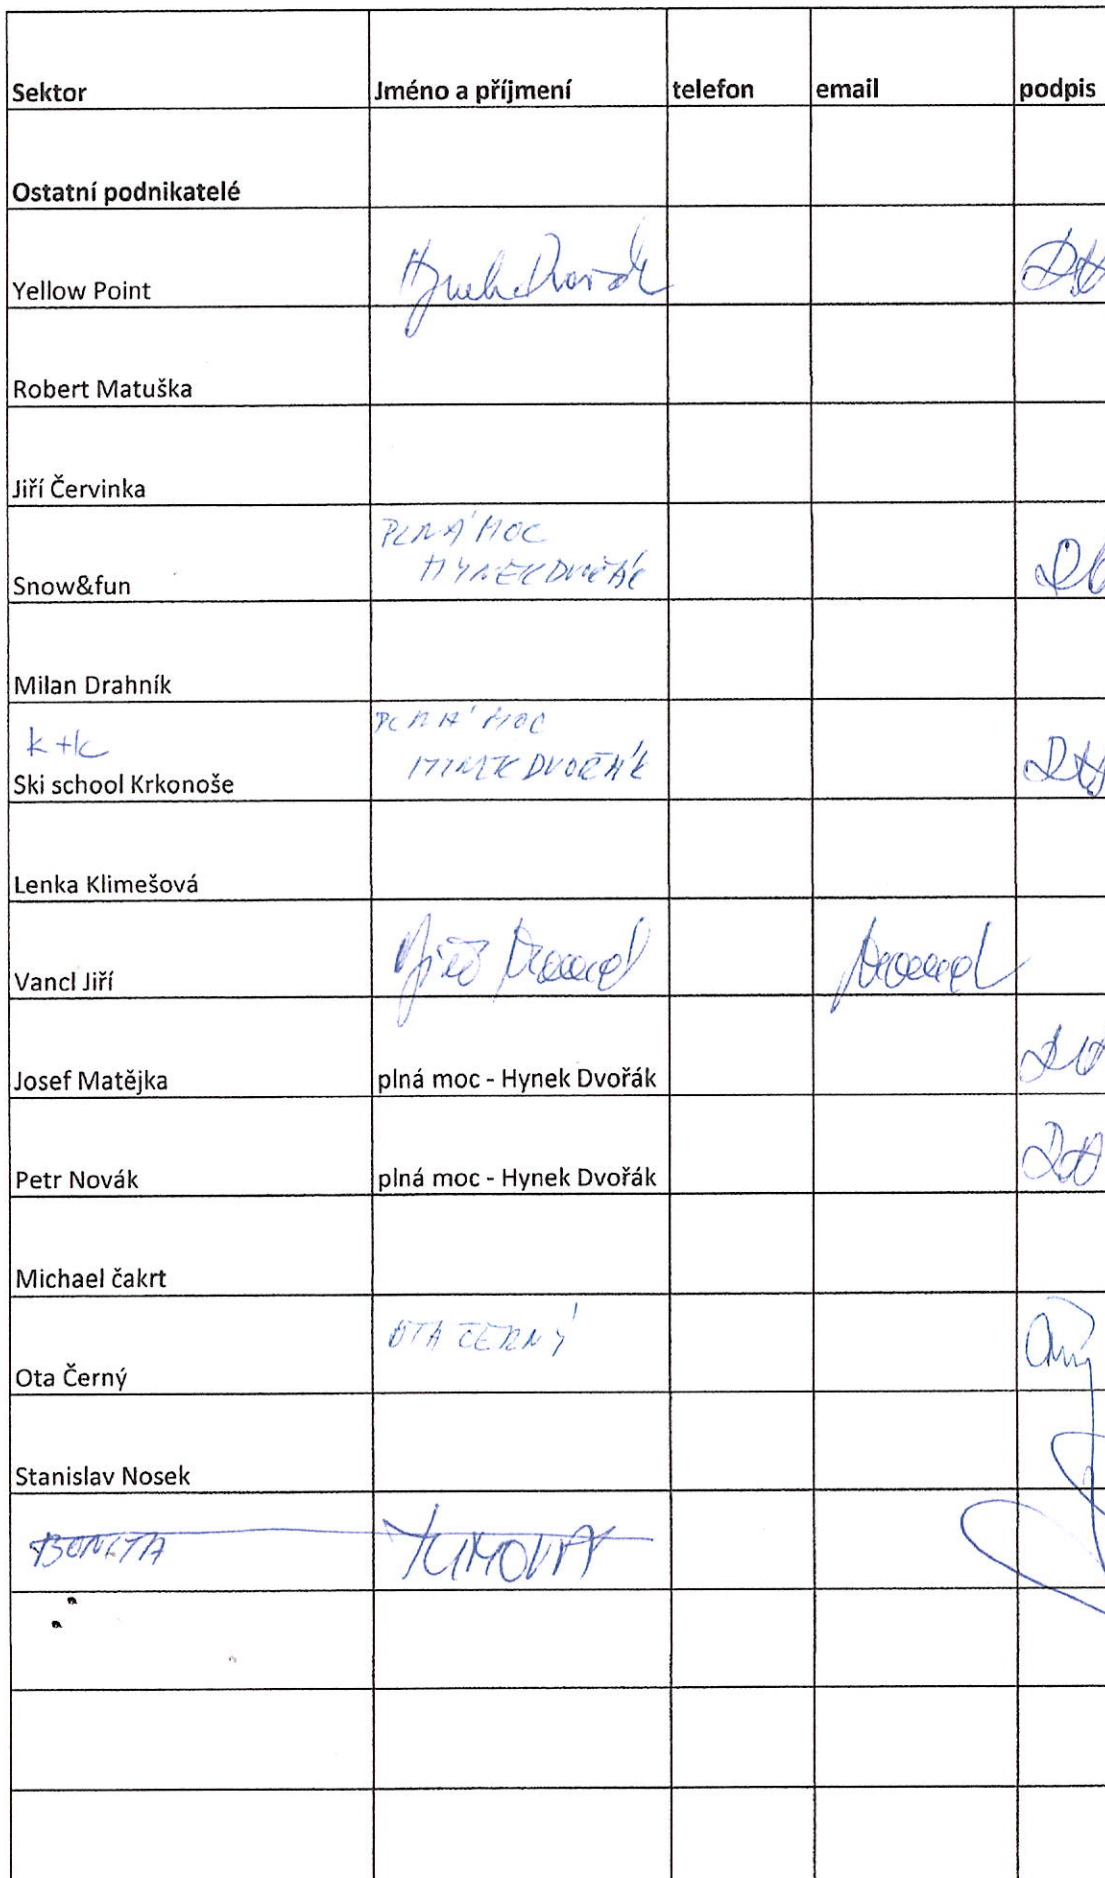 Sektor Jméno a příjmení telefon email podpis
Ostatní podnikatelé
Yellow Point Hynek Dvořák
Robert Matuška
Jiří Červinka
PLNÁ MOC
Snow&fun HYNEK DVOŘÁK
Milan Drahník
k+k PLNÁ MOC
Ski school Krkonoše HYNEK DVOŘÁK
Lenka Klimešová
Vancl Jiří Jiří Vancl Vancl
Josef Matějka plná moc - Hynek Dvořák
Petr Novák plná moc - Hynek Dvořák
Michael čakrt
Ota Černý OTA ČERNÝ
Stanislav Nosek
BONITA